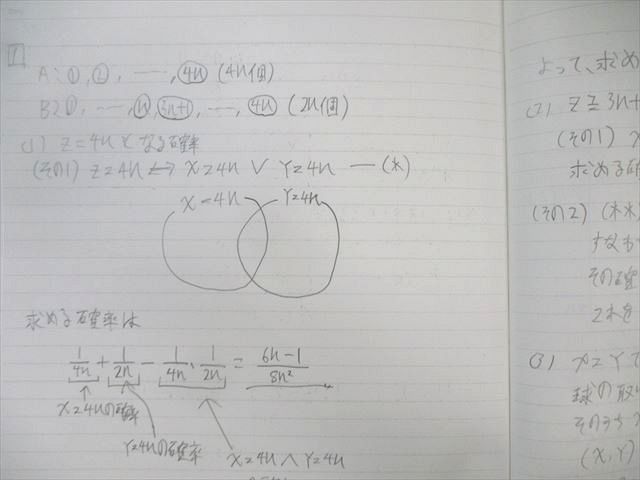 1
A:①,②,……,④n (4n個)
B:①,……,ⓝ,(3n+1),……,④n (2n個)
(1) Z=4nとなる確率
(その1) Z=4n ⟺ X=4n ∨ Y=4n ―(*)
X=4n Y=4n
求める確率は
1/4n + 1/2n - 1/4n・1/2n = 6n-1/8n²
X=4nの確率
Y=4nの確率
X=4n ∧ Y=4n
よって、求め
(2) Z≧3n+
(その1)
求める確
(その2) (**)
すなわち
その確
これを
(3) X=Yで
球の取り
そのうち
(X,Y)